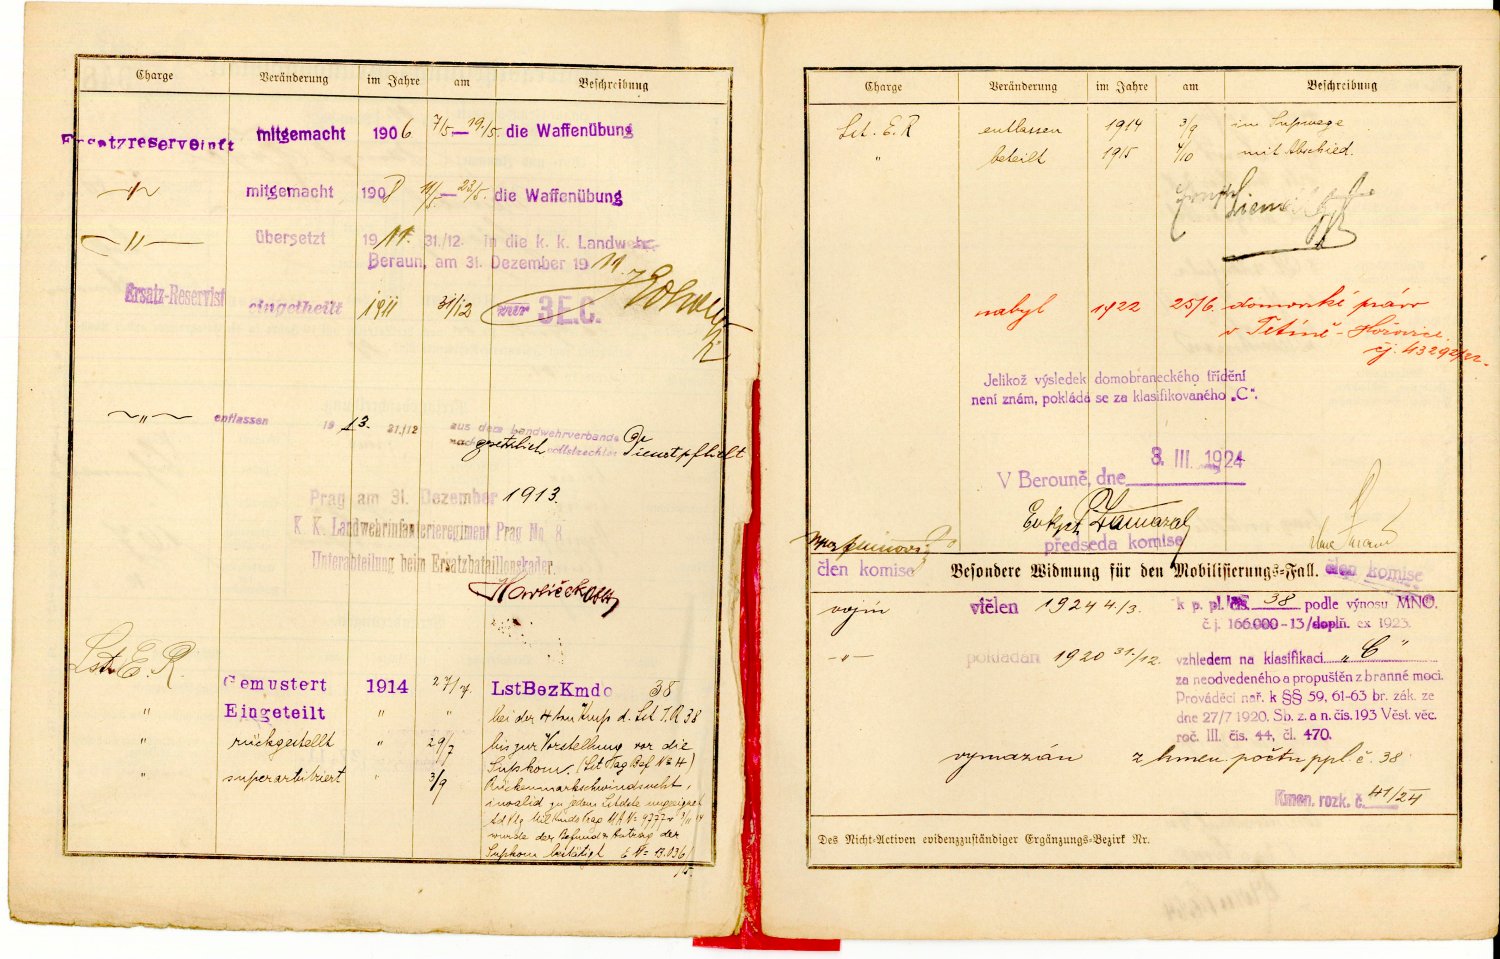 Charge Veränderung im Jahre am Beschreibung
Ersatzreserveinft mitgemacht 1906 7/5.—19/5. die Waffenübung
—"— mitgemacht 1908 11/5—23/5. die Waffenübung
—"— übersetzt 1911. 31./12. in die k. k. Landwehr
Beraun, am 31. Dezember 1911.
Ersatz-Reservist eingetheilt 1911 31/12 nur 3E.C.
—"— entlassen 1913. 31./12 aus dem Landwehrverbande
nach gesetzlich vollstreckter Dienstpflicht
Prag am 31. Dezember 1913.
K. K. Landwehrinfanterieregiment Prag No. 8
Unterabteilung beim Ersatzbataillonskader.
Lst. E. R.
Gemustert 1914 27/7. LstBezKmdo 38
" Eingeteilt " " bei der 4 ten Komp d. Lst I. R 38
" rückgestellt " 29/7 bis zur Vorstellung vor die
Supkom. (Lst Tag Bef No 4)
" superarbitriert " 3/9 Rückenmarkschwindsucht,
invalid zu jedem Lstdste ungeeignet
wurde der Befund u Antrag der
Supkom bestätigt E No 13.036/
15.
Charge Veränderung im Jahre am Beschreibung
Lst. E. R entlassen 1914 3/9 im Supwege
" beteilt 1915 4/10 mit Abschied.
nabyl 1922 25/6. domovské právo
v Tetíně - Hořovice
čj. 43292/22.
Jelikož výsledek domobraneckého třídění
není znám, pokládá se za klasifikovaného „C".
V Berouně, dne 3. III. 1924
předseda komise
člen komise Besondere Widmung für den Mobilisierungs-Fall. člen komise
vojín vtělen 1924 4/3. k p. pl. čís. 38 podle výnosu MNO.
č. j. 166.000-13/doplň. ex 1923.
—"— pokládán 1920 31./12. vzhledem na klasifikaci „C"
za neodvedeného a propuštěn z branné moci.
Prováděcí nař. k §§ 59, 61-63 br. zák. ze
dne 27/7 1920. Sb. z. a n. čís. 193 Věst. věc.
roč. III. čís. 44, čl. 470.
vymazán z kmen. počtu ppl. č. 38
Kmen. rozk. č. 41/24
Des Nicht-Activen evidenzzuständiger Ergänzungs-Bezirk Nr.